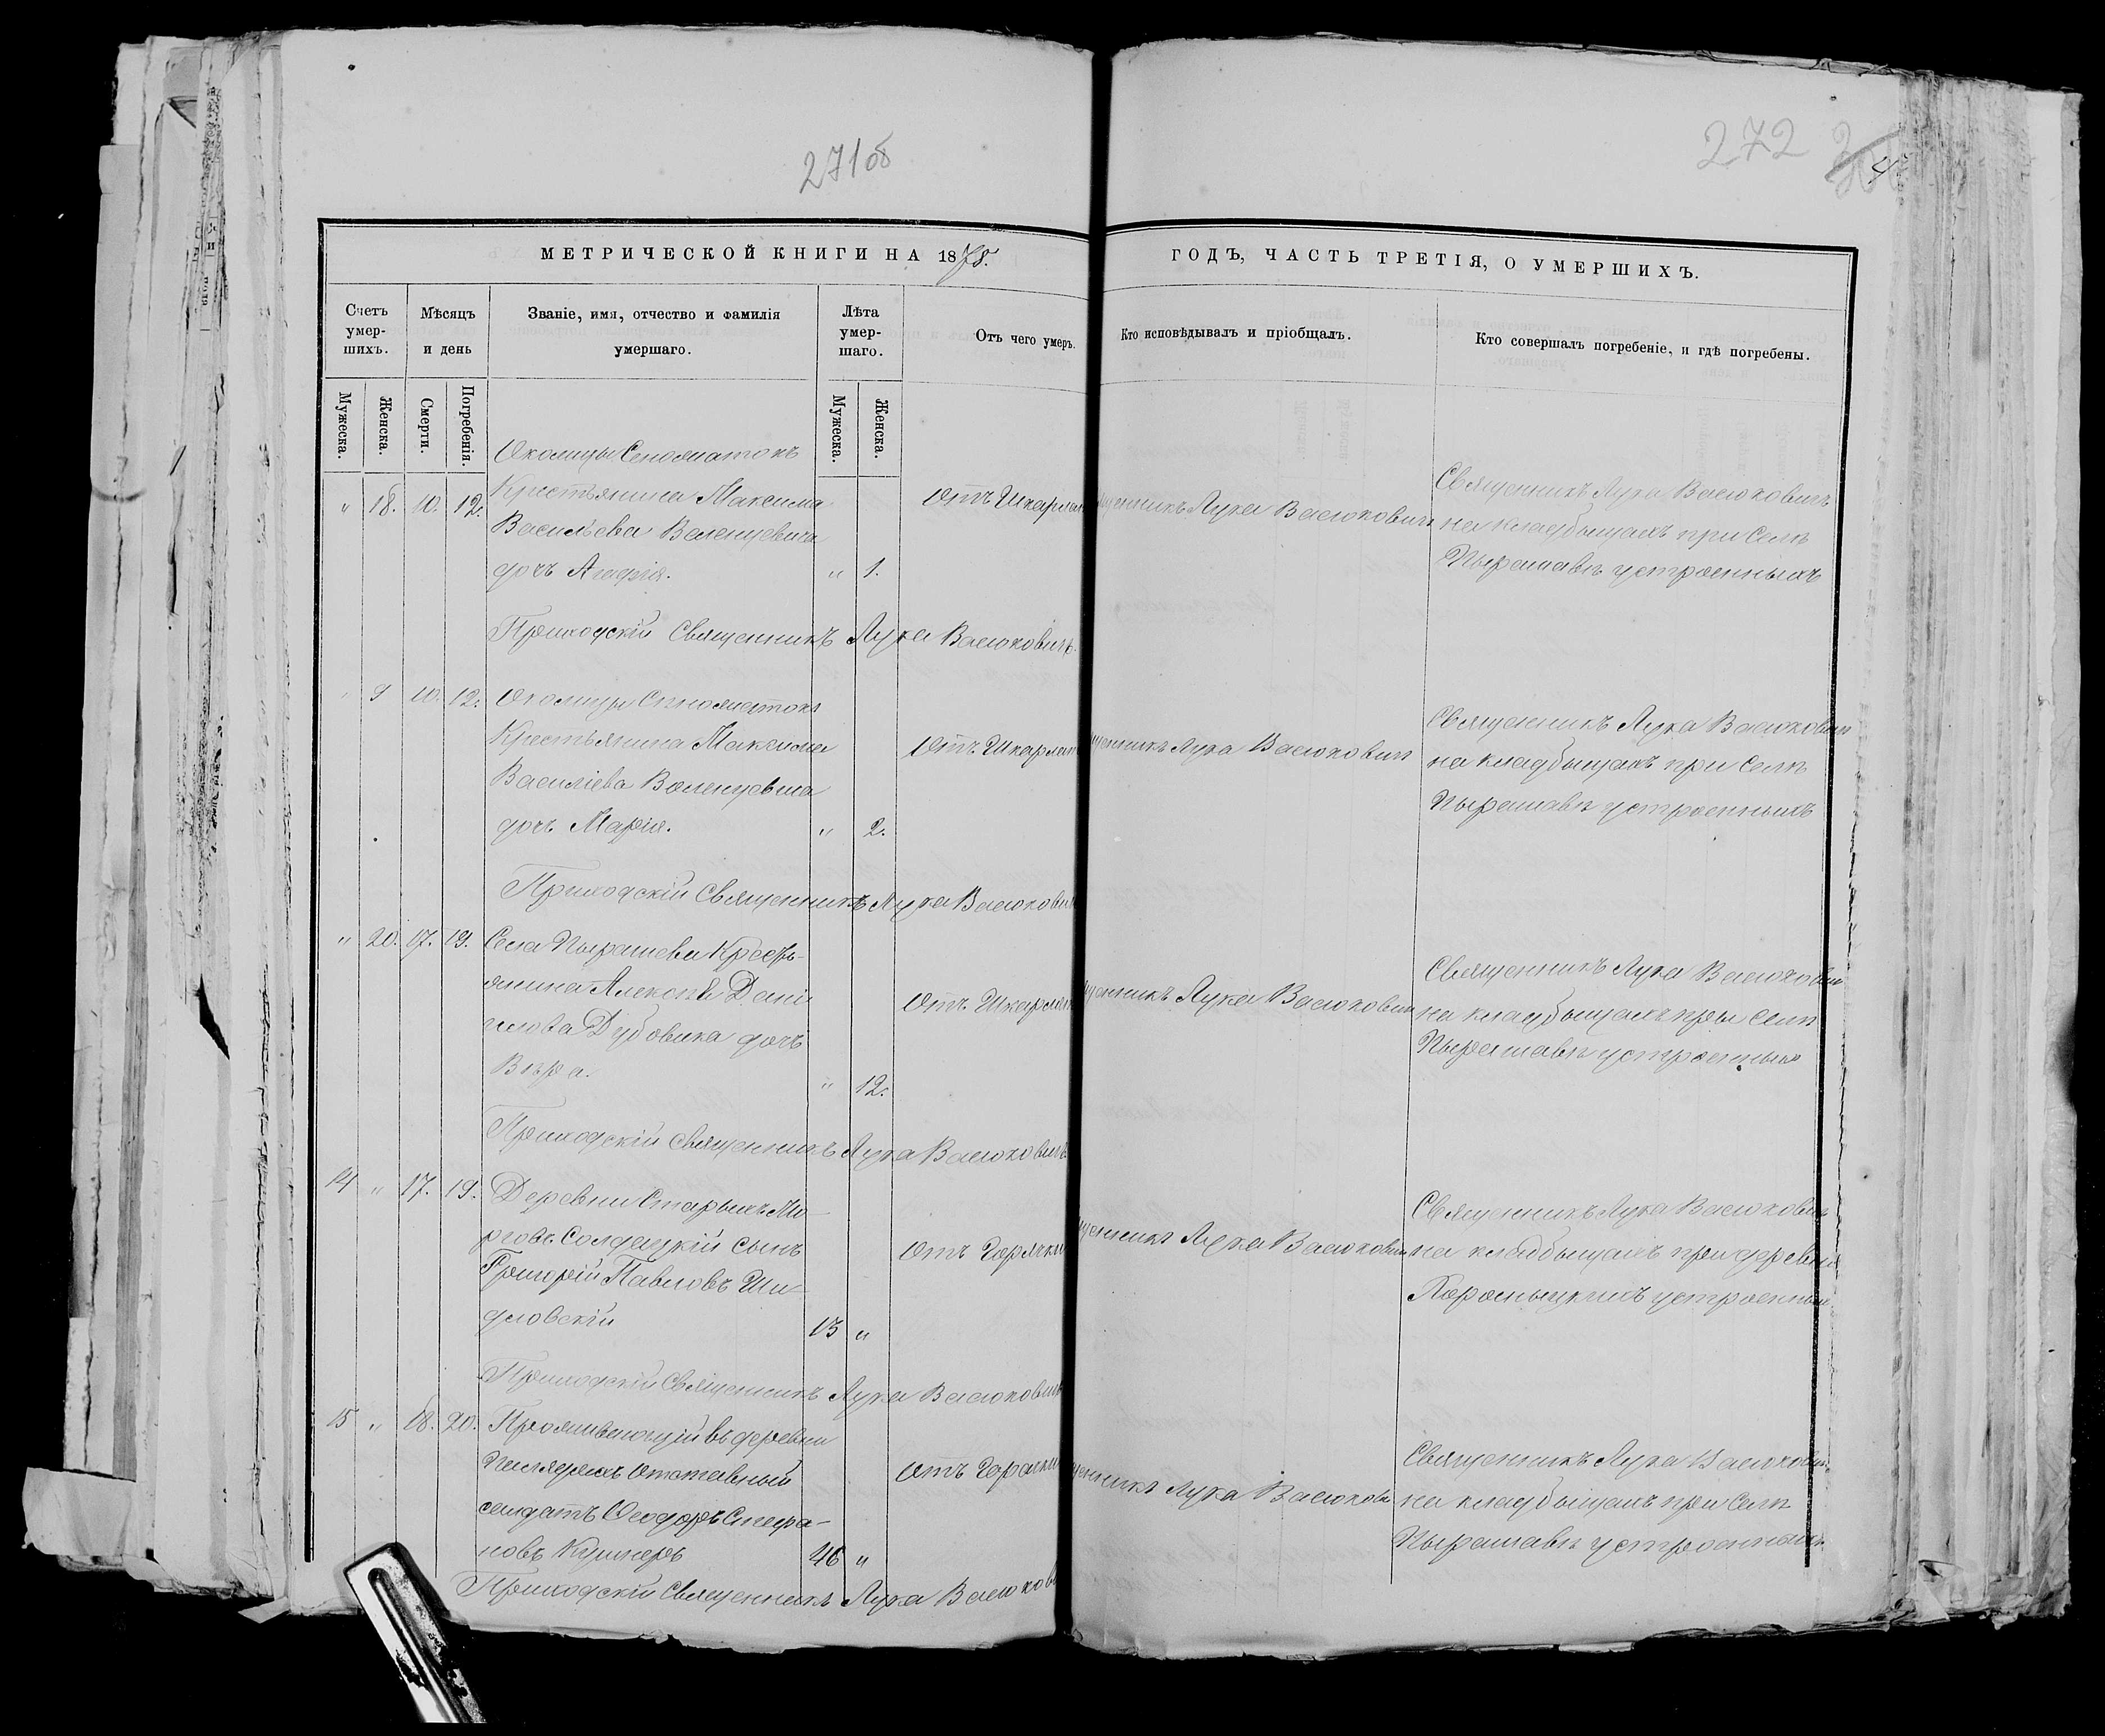 271 об
272
МЕТРИЧЕСКОЙ КНИГИ НА 1878.
ГОДЪ, ЧАСТЬ ТРЕТІЯ, О УМЕРШИХЪ.
Счетъ умер-шихъ.
Мѣсяцъ и день
Званіе, имя, отчество и фамилія умершаго.
Лѣта умер-шаго.
Отъ чего умеръ.
Кто исповѣдывалъ и пріобщалъ.
Кто совершалъ погребеніе, и гдѣ погребены.
Мужеска.
Женска.
Смерти.
Погребенія.
Мужеска.
Женска.
Околицы
„ 18. 10. 12.
Крестьянина Максима
Васильева Веленцевича
дочь Агафія.
„ 1.
Отъ Шкарла
щенникъ Лука Васюковичъ
Священникъ Лука Васюковичъ
на кладбищахъ при селѣ
Пырашавѣ устроенныхъ
Приходскій Священникъ Лука Васюковичъ.
„ 9 10. 12.
Околицы
Крестьянина Максима
Василіева Воленцевича
дочь Марія.
„ 2.
Отъ Шкарлат
щенникъ Лука Васюковичъ
Священникъ Лука Васюковичъ
на кладбищахъ при селѣ
Пырашавѣ устроенныхъ
Приходскій Священникъ Лука Васюкович
„ 20. 17. 19.
Села Пырашева Кресть-
янина Алексѣя Дани
лова Дубовика дочь
Вѣра.
„ 12.
Отъ Шкарлат
щенникъ Лука Васюкович
Священникъ Лука Васюкович
на кладбищахъ при селѣ
Пырашавѣ устроенныхъ
Приходскій Священникъ Лука Васюковичъ
14 „ 17. 19.
Деревни Старыхъ Мо
рговъ Солдацкій сынъ
Григорій Павловъ Ши-
дловскій
13 „
Отъ Горячки
щенникъ Лука Васюкович
Священникъ Лука Васюкович
на кладбищахъ при деревни
устроенных
Приходскій Священникъ Лука Васюкович
15 „ 18. 20.
Проживающій въ деревни
Отставный
солдатъ Ѳеодоръ Стефа-
новъ Кушнеръ
46 „
Отъ Горячки
щенникъ Лука Васюкови
Священникъ Лука Васюкович
на кладбищахъ при селѣ
Пырашавѣ устроенных
Приходскій Священникъ Лука Васюкови